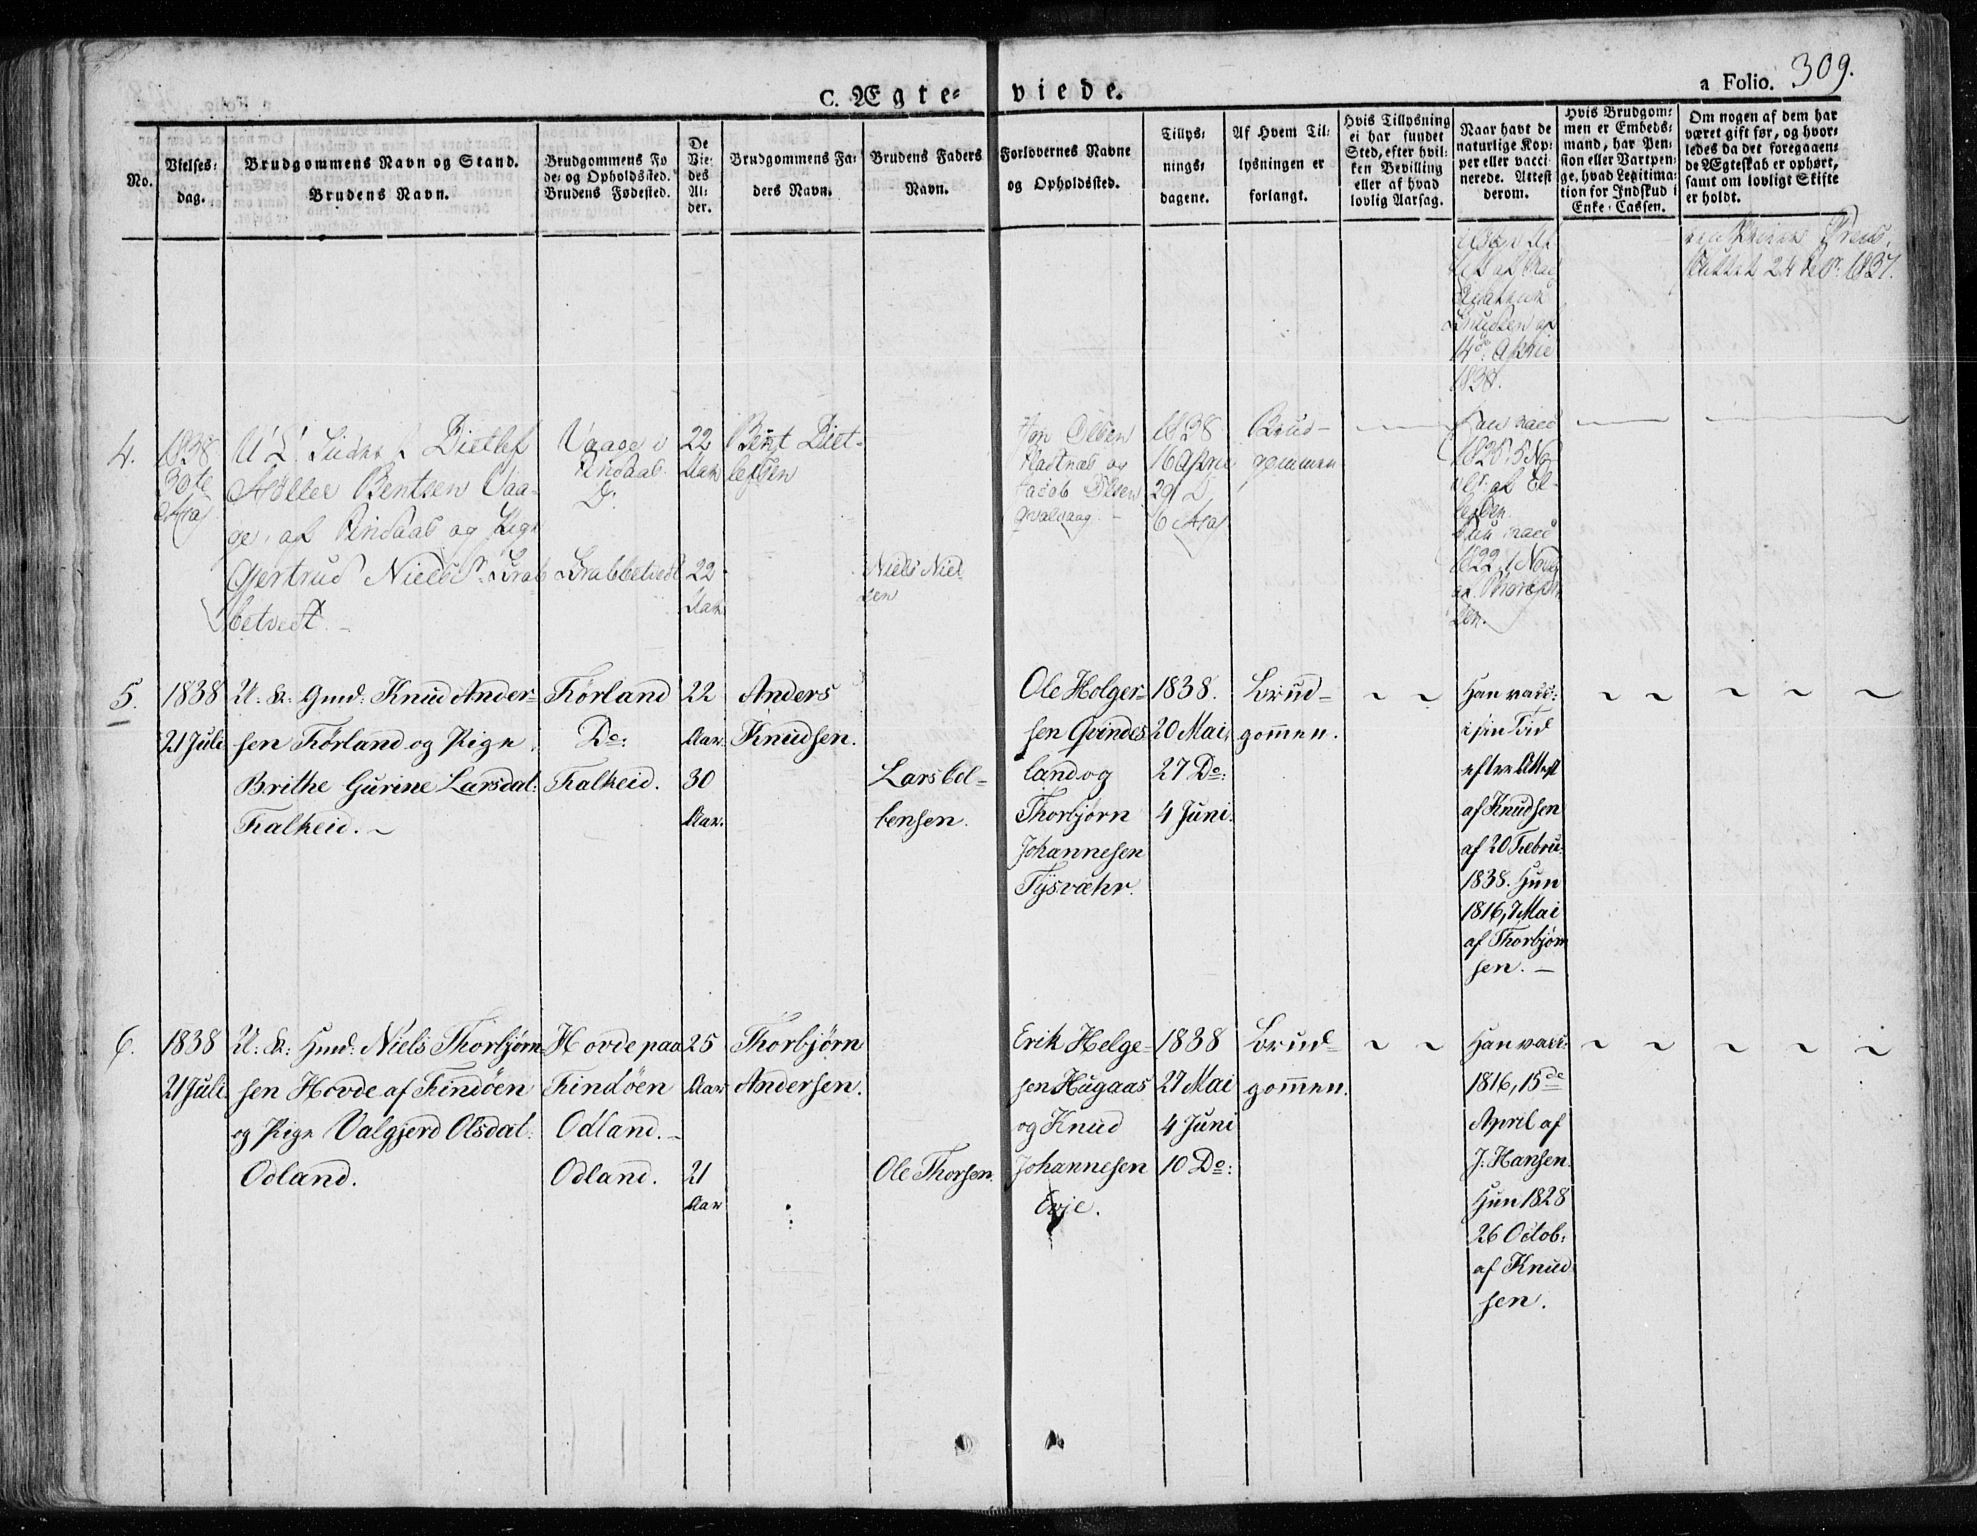 C. Ægte- viede.
a Folio. 309.
No.
Vielses-
dag.
Brudgommens Navn og Stand.
Brudens Navn.
Brudgommens Fø
de- og Opholdssted.
Brudens Fødested.
De
Vie-
des
Al-
der.
Brudgommens Fa-
ders Navn.
Brudens Faders
Navn.
Forlovernes Navne
og Opholdssted.
Tillys-
nings-
dagene.
Af Hvem Til-
lysningen er
forlangt.
Hvis Tillysning
ei har fundet
Sted, efter hvil-
ken Bevilling
eller af hvad
lovlig Aarsag.
Naar havt de
naturlige Kop-
per eller vacci-
nerede. Attest
derom.
Hvis Brudgom-
men er Embeds-
mand, har Pen-
sion eller Vartpen-
ge, hvad Legitima-
tion for Indskud i
Enke-Cassen.
Om nogen af dem har
været gift før, og hvor-
ledes da det foregaaen-
de Ægteskab er ophørt,
samt om lovligt Skifte
er holdt.
Knudsen af
14de April
1838.
24 1837.
4.
1838
30te
Maj
Ditlef
Møller Bentsen Vaa-
ge, af og Pige
Gertrud Nielsd. Krab-
betvedt
Vaage i
Do
Krabbetvedt
22
Aar
22
Aar
Bent Diet-
lefsen
Niels Niel-
sen
Olsen
og
Jacob Olsen
Qvalvaag.
1838
16 April
29 D
6 Maj
Brud-
gommen
Han vacc
1822, 1 Nov
5.
1838
21 Juli
U: K: Gmd: Knud Ander-
sen Førland og Pige
Brithe Gurine Larsdat:
Falkeid.
Førland
Do:
Falkeid.
22
Aar.
30
Aar.
Anders
Knudsen.
Lars Col-
bensen.
Ole Holger-
sen Qvindes-
land og
Thorbjørn
Johannesen
Tysvæhr.
1838.
20 Mai,
27 Do:
4 Juni.
Brud-
gommen.
Han vacc:
i sin Tid
efter Attest
af Knudsen
af 20 Febru:
1838. Hun
1816, 7 Mai
af Thorbjørn
sen.
6.
1838
21 Juli
U: K: Gmd: Niels Thorbjørn-
sen Hovde af Findöen
og Pige Valgjerd Olsdat:
Odland.
Hovde paa
Findöen
Odland.
Odland.
25
Aar
21
Aar
Thorbjørn
Andersen.
Ole Thorsen.
Erik Helge-
sen Hugaas
og Knud
Johannesen
Evje.
1838
27 Mai
4 Juni
10 Do:
Brud-
gommen.
Han vacc:
1816, 15de
April af
J: Hansen.
Hun 1828
26 Octob:
af Knud-
sen.